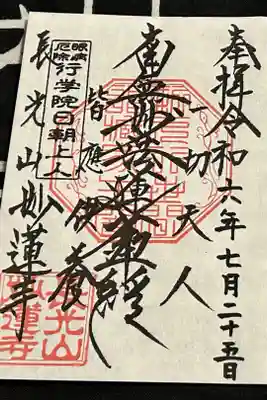 奉拝
令和六年七月二十五日
一切天人
南無妙法蓮華経
皆應供養
眼病
厄除
行学院日朝上人
長光山妙蓮寺
長光山
妙蓮寺